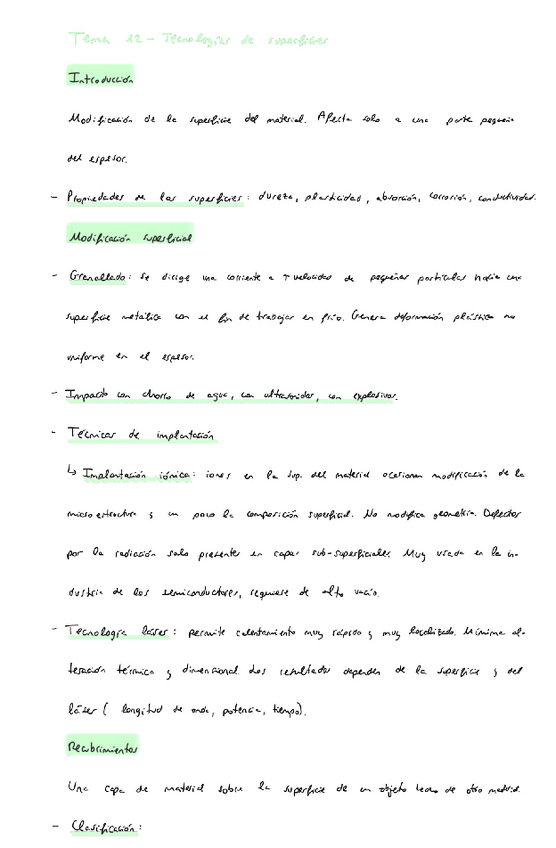 Tema 12 - Tecnologías de superficies
Introducción
Modificación de la superficie del material. Afecta solo a una parte pequeña
del espesor.
- Propiedades de las superficies: dureza, plasticidad, absorción, corrosión, conductividad.
Modificación superficial
- Granallado: se dirige una corriente a ↑ velocidad de pequeñas partículas hacia una
superficie metálica con el fin de trabajar en frío. Genera deformación plástica no
uniforme en el espesor.
- Impacto con chorro de agua, con ultrasonidos, con explosivos.
- Técnicas de implantación
↳ Implantación iónica: iones en la sup. del material ocasionan modificación de la
microestructura y un poco la composición superficial. No modifica geometría. Defectos
por la radiación solo presentes en capas sub-superficiales. Muy usada en la in-
dustria de los semiconductores, requiere de alto vacío.
- Tecnología láser: permite calentamiento muy rápido y muy localizado. Mínima al-
teración térmica y dimensional. Los resultados dependen de la superficie y del
láser (longitud de onda, potencia, tiempo).
Recubrimientos
Una capa de material sobre la superficie de un objeto hecho de otro material.
- Clasificación: